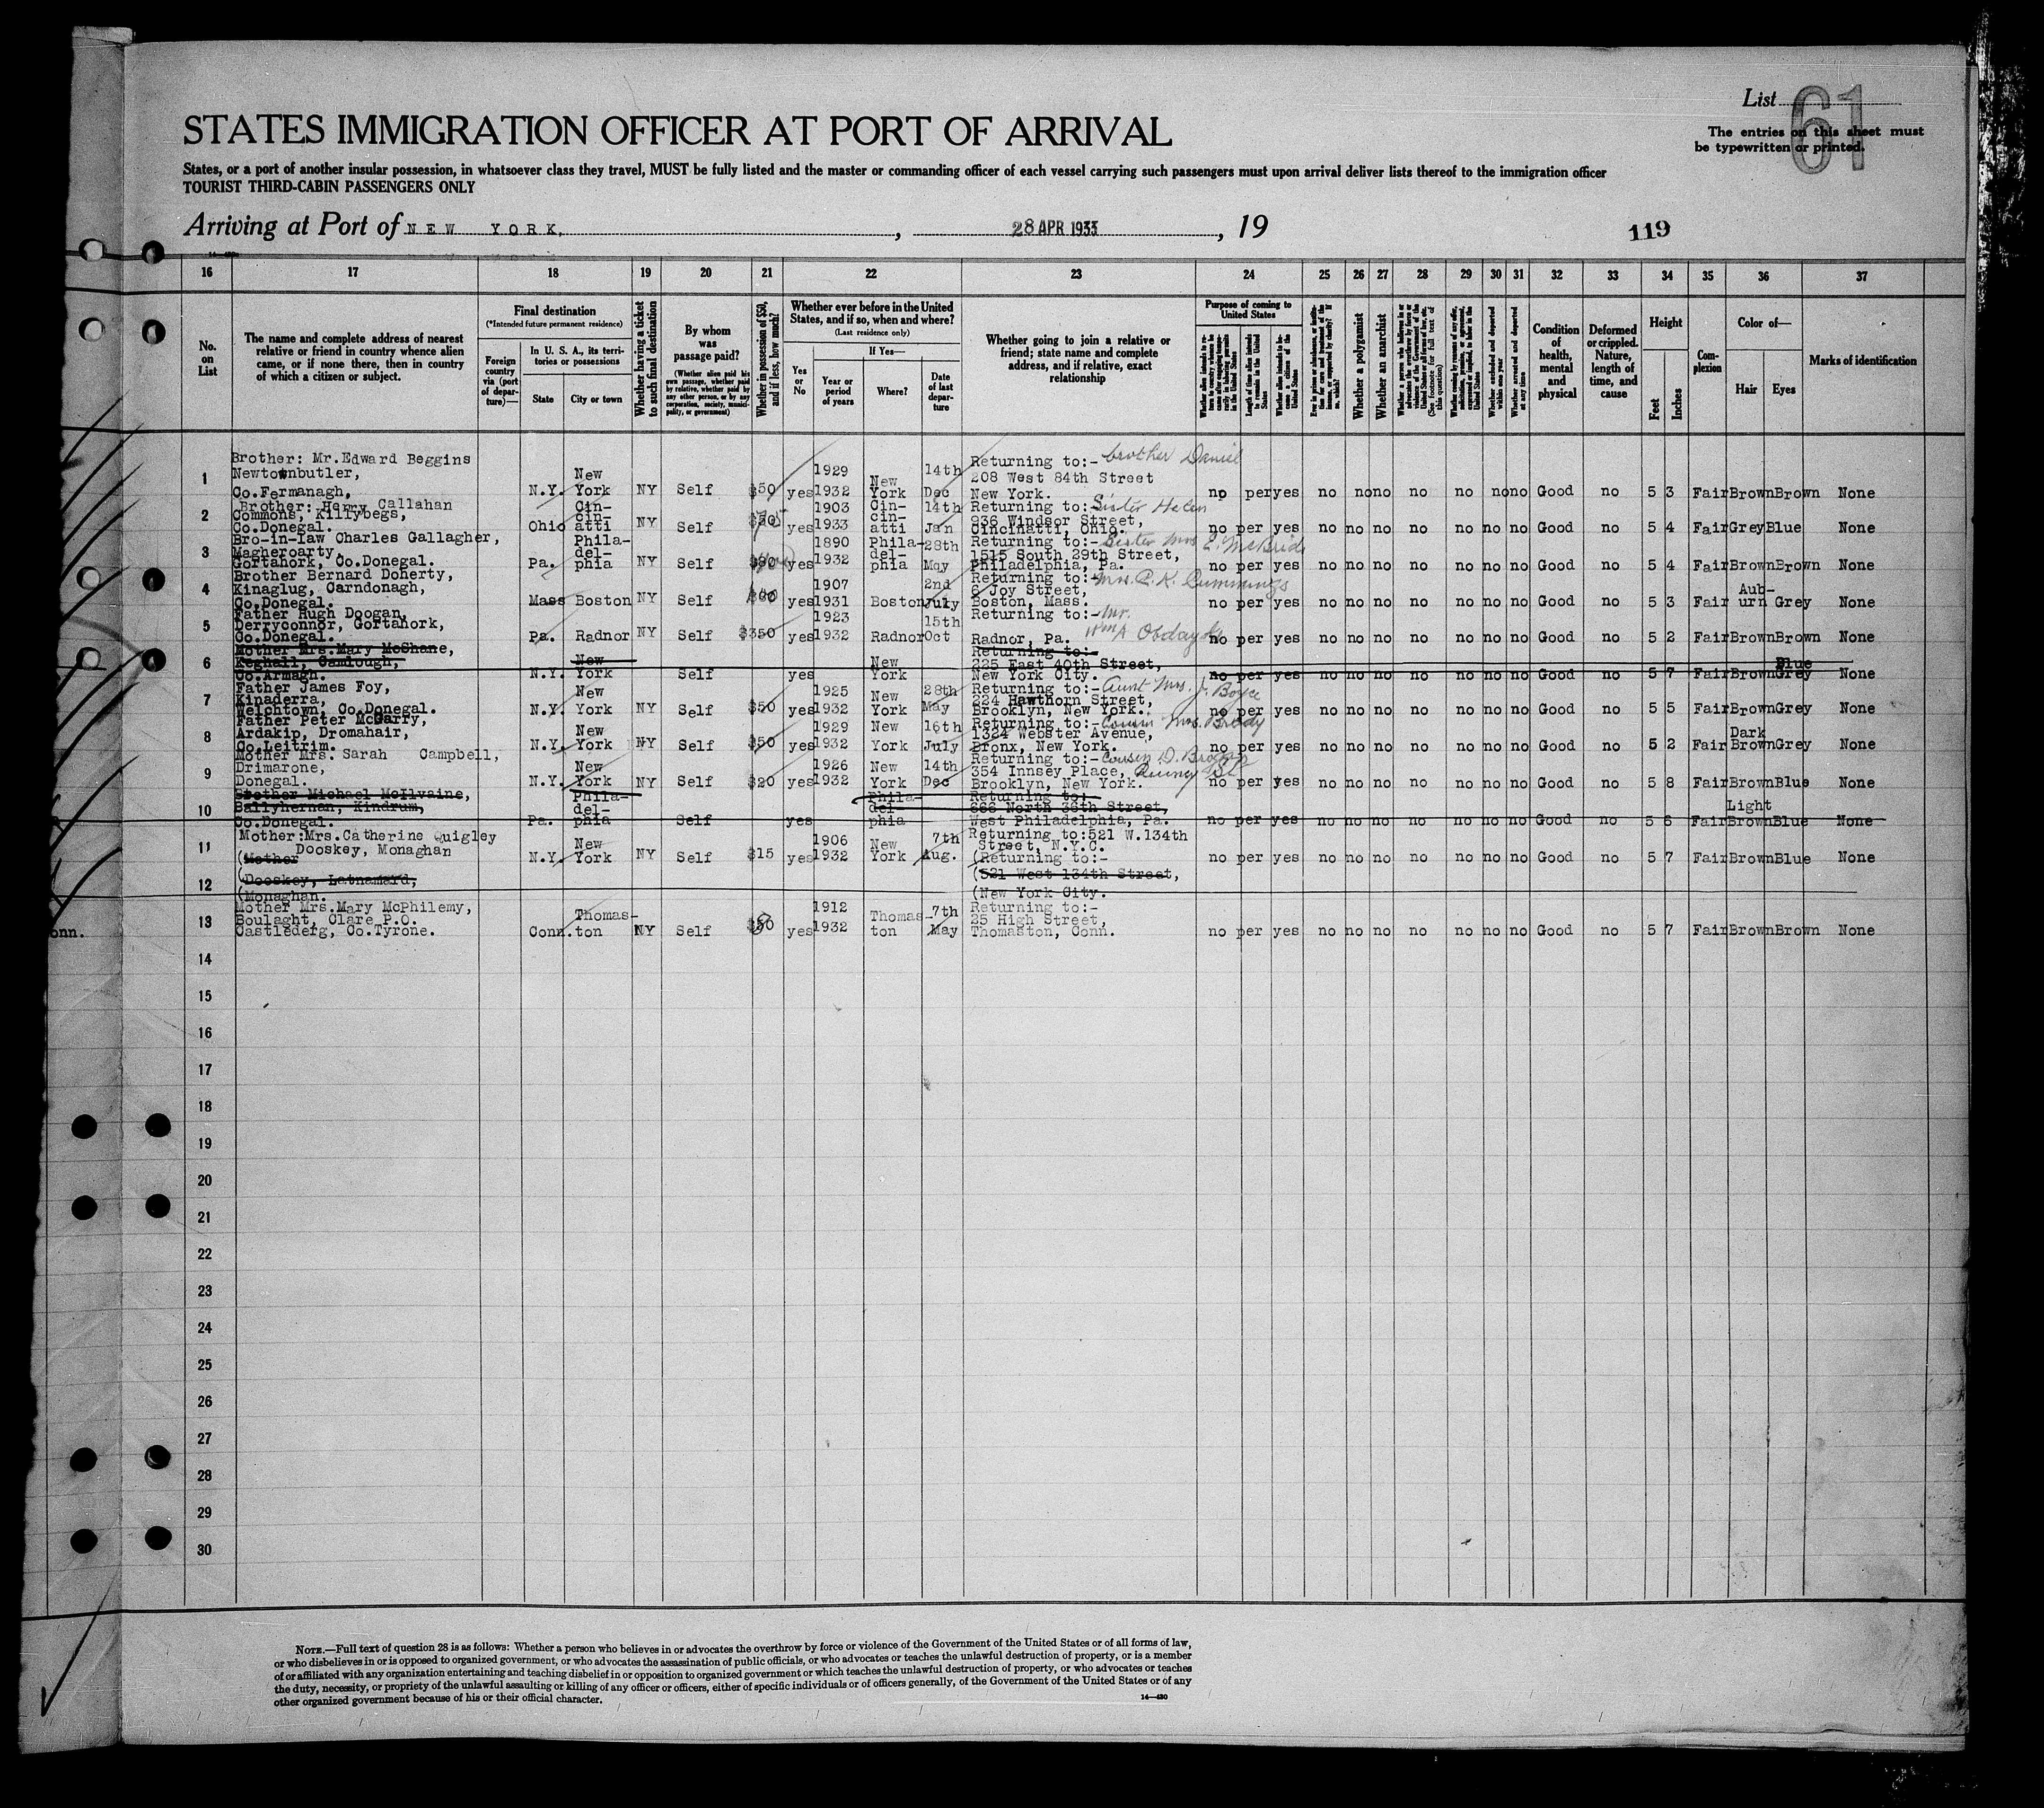 List 61
STATES IMMIGRATION OFFICER AT PORT OF ARRIVAL
The entries on this sheet must
be typewritten or printed.
States, or a port of another insular possession, in whatsoever class they travel, MUST be fully listed and the master or commanding officer of each vessel carrying such passengers must upon arrival deliver lists thereof to the immigration officer
TOURIST THIRD-CABIN PASSENGERS ONLY
Arriving at Port of NEW YORK. , 28 APR 1933 , 19
119
16 17 18 19 20 21 22 23 24 25 26 27 28 29 30 31 32 33 34 35 36 37
No. on List
The name and complete address of nearest
relative or friend in country whence alien
came, or if none there, then in country
of which a citizen or subject.
Final destination
(*Intended future permanent residence)
Foreign country via (port of departure)—
In U. S. A., its territories or possessions
State
City or town
Whether having a ticket to such final destination
By whom was passage paid?
(Whether alien paid his own passage, whether paid by relative, whether paid by any other person, or by any corporation, society, municipality, or government)
Whether in possession of $50, and if less, how much?
Whether ever before in the United
States, and if so, when and where?
(Last residence only)
Yes or No
If Yes—
Year or period of years
Where?
Date of last departure
Whether going to join a relative or
friend; state name and complete
address, and if relative, exact
relationship
Purpose of coming to United States
Whether a polygamist
Whether an anarchist
Condition of health, mental and physical
Deformed or crippled. Nature, length of time, and cause
Height
Feet
Inches
Complexion
Color of—
Hair
Eyes
Marks of identification
1 Brother: Mr.Edward Beggins
Newtownbutler,
Co.Fermanagh,
N.Y. New York NY Self $50 yes 1929 1932 New York 14th Dec
Returning to:- brother Daniel
208 West 84th Street
New York.
no per yes no no no no no no no Good no 5 3 Fair Brown Brown None
2 Brother: Henry Callahan
Commons, Killybegs,
Co.Donegal.
Ohio Cincinatti NY Self yes 1903 1933 Cincinatti 14th Jan
Returning to:- Sister Helen
936 Windsor Street,
Cincinatti, Ohio.
no per yes no no no no no no no Good no 5 4 Fair Grey Blue None
3 Bro-in-law Charles Gallagher,
Magheroarty,
Gortahork, Co.Donegal.
Pa. Philadelphia NY Self yes 1890 1932 Philadelphia 28th May
Returning to:- Sister Mrs E. McBride
1515 South 29th Street,
Philadelphia, Pa.
no per yes no no no no no no no Good no 5 4 Fair Brown Brown None
4 Brother Bernard Doherty,
Kinaglug, Carndonagh,
Co.Donegal.
Mass Boston NY Self yes 1907 1931 Boston 2nd July
Returning to:- Mrs. C. K. Cummings
6 Joy Street,
Boston, Mass.
no per yes no no no no no no no Good no 5 3 Fair Auburn Grey None
5 Father Hugh Doogan,
Derryconnor, Gortahork,
Co.Donegal.
Pa. Radnor NY Self $350 yes 1923 1932 Radnor 15th Oct
Returning to:- Mr.
Wm A Obdayke
Radnor, Pa.
no per yes no no no no no no no Good no 5 2 Fair Brown Brown None
6 Mother Mrs.Mary McShane,
Keghall, Camlough,
Co.Armagh.
N.Y. New York Self yes New York
Returning to:-
225 East 40th Street,
New York City.
no per yes no no no no no no no Good no 5 7 Fair Brown Blue Grey None
7 Father James Foy,
Kinaderra,
Welchtown, Co.Donegal.
N.Y. New York NY Self $50 yes 1925 1932 New York 28th May
Returning to:- Aunt Mrs. J. Boyce
224 Hawthorn Street,
Brooklyn, New York.
no per yes no no no no no no no Good no 5 5 Fair Brown Grey None
8 Father Peter McGarry,
Ardakip, Dromahair,
Co.Leitrim.
N.Y. New York NY Self $50 yes 1929 1932 New York 16th July
Returning to:- Cousin Mrs. Brody
1324 Webster Avenue,
Bronx, New York.
no per yes no no no no no no no Good no 5 2 Fair Dark Brown Grey None
9 Mother Mrs. Sarah Campbell,
Drimarone,
Donegal.
N.Y. New York NY Self $20 yes 1926 1932 New York 14th Dec
Returning to:- Cousin D. Brogan
354 Innsey Place, Quincy St
Brooklyn, New York.
no per yes no no no no no no no Good no 5 8 Fair Brown Blue None
10 Brother Michael McIlvaine,
Ballyhernan, Kindrum,
Co.Donegal.
Pa. Philadelphia Self yes Philadelphia
Returning to:-
666 North 36th Street,
West Philadelphia, Pa.
no per yes no no no no no no no Good no 5 6 Fair Light Brown Blue None
11 Mother:Mrs.Catherine Quigley
Dooskey, Monaghan
(Mother
N.Y. New York NY Self $15 yes 1906 1932 New York 7th Aug.
Returning to:521 W.134th
Street, N.Y.C.
(Returning to:-
no per yes no no no no no no no Good no 5 7 Fair Brown Blue None
12 (Dooskey, Latnamard,
(Monaghan.
(521 West 134th Street,
(New York City.
13 Mother Mrs.Mary McPhilemy,
Boulaght, Clare P.O.
Castlederg, Co.Tyrone.
onn.
Conn. Thomaston NY Self yes 1912 1932 Thomaston 7th May
Returning to:-
25 High Street,
Thomaston, Conn.
no per yes no no no no no no no Good no 5 7 Fair Brown Brown None
14
15
16
17
18
19
20
21
22
23
24
25
26
27
28
29
30
NOTE.—Full text of question 28 is as follows: Whether a person who believes in or advocates the overthrow by force or violence of the Government of the United States or of all forms of law,
or who disbelieves in or is opposed to organized government, or who advocates the assassination of public officials, or who advocates or teaches the unlawful destruction of property, or is a member
of or affiliated with any organization entertaining and teaching disbelief in or opposition to organized government or which teaches the unlawful destruction of property, or who advocates or teaches
the duty, necessity, or propriety of the unlawful assaulting or killing of any officer or officers, either of specific individuals or of officers generally, of the Government of the United States or of any
other organized government because of his or their official character.
14—430